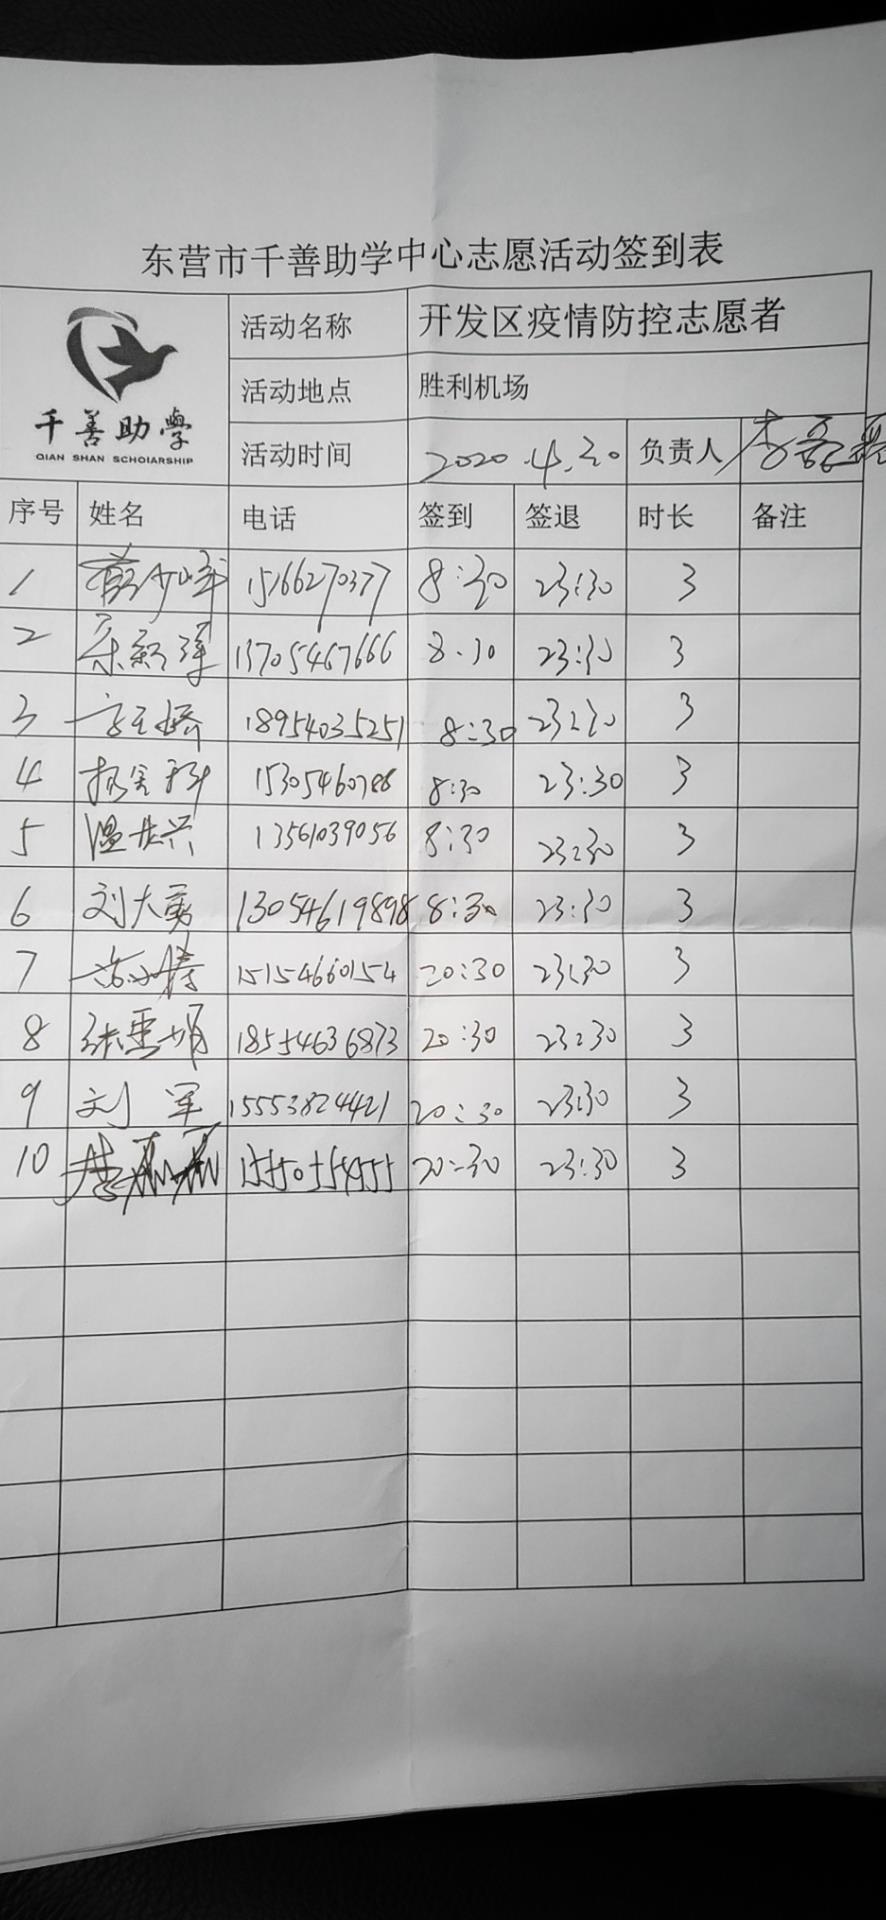 东营市千善助学中心志愿活动签到表
千善助學
QIAN SHAN SCHOIARSHIP
活动名称 开发区疫情防控志愿者
活动地点 胜利机场
活动时间 2020.4.20 负责人 李磊磊
序号 姓名 电话 签到 签退 时长 备注
1 15266270377 8:30 23:30 3
2 13705467666 8.30 23:30 3
3 18954035251 8:30 23:30 3
4 8:30 23:30 3
5 温 兴 13561039056 8:30 23:30 3
6 刘大勇 13054619898 8:30 23:30 3
7 15154660154 20:30 23:30 3
8 张 娟 18554636873 20:30 23:30 3
9 刘军 15553824421 20:30 23:30 3
10 20:30 23:30 3